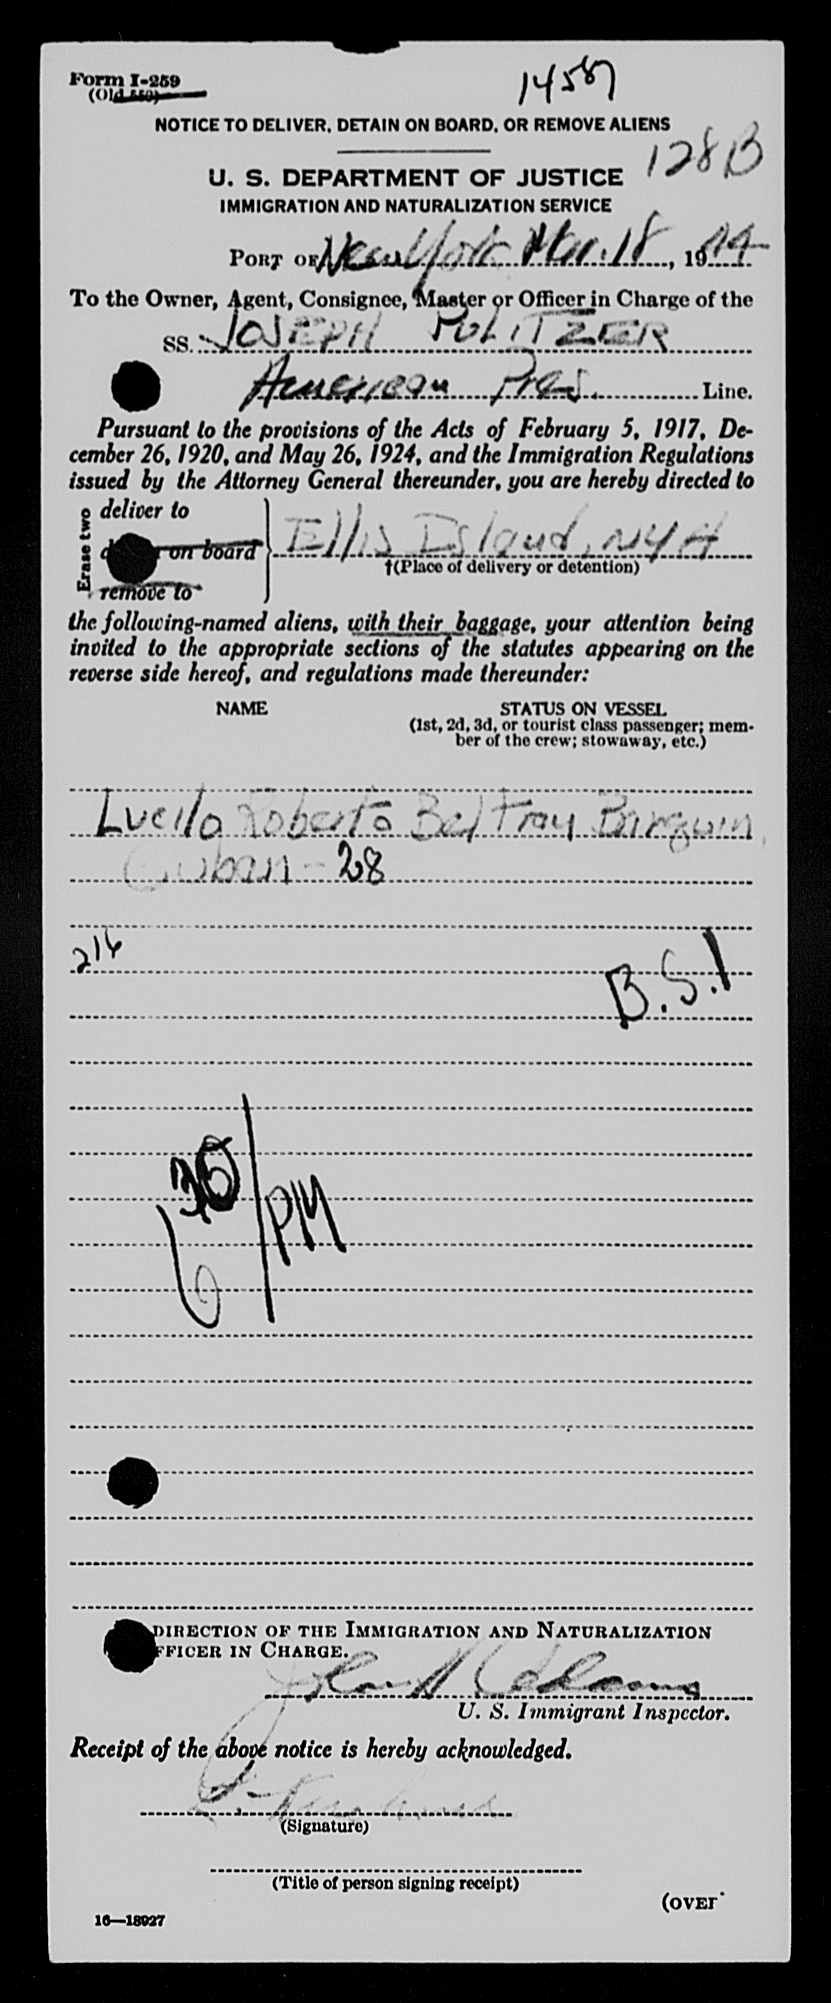 Form I-259
(Old 559)
14587
NOTICE TO DELIVER, DETAIN ON BOARD, OR REMOVE ALIENS
128B
U. S. DEPARTMENT OF JUSTICE
IMMIGRATION AND NATURALIZATION SERVICE
PORT OF New York Mar. 18, 1944
To the Owner, Agent, Consignee, Master or Officer in Charge of the
SS. JOSEPH PULITZER
American Pres. Line.
Pursuant to the provisions of the Acts of February 5, 1917, De-
cember 26, 1920, and May 26, 1924, and the Immigration Regulations
issued by the Attorney General thereunder, you are hereby directed to
Erase two
deliver to
on board
remove to
Ellis Island, NYH
†(Place of delivery or detention)
the following-named aliens, with their baggage, your attention being
invited to the appropriate sections of the statutes appearing on the
reverse side hereof, and regulations made thereunder:
NAME
STATUS ON VESSEL
(1st, 2d, 3d, or tourist class passenger; mem-
ber of the crew; stowaway, etc.)
Roberto
Cuban - 28
216
B.S.I
6 30/PM
DIRECTION OF THE IMMIGRATION AND NATURALIZATION
OFFICER IN CHARGE.
Adams
U. S. Immigrant Inspector.
Receipt of the above notice is hereby acknowledged.
(Signature)
(Title of person signing receipt)
16—18927
(OVER